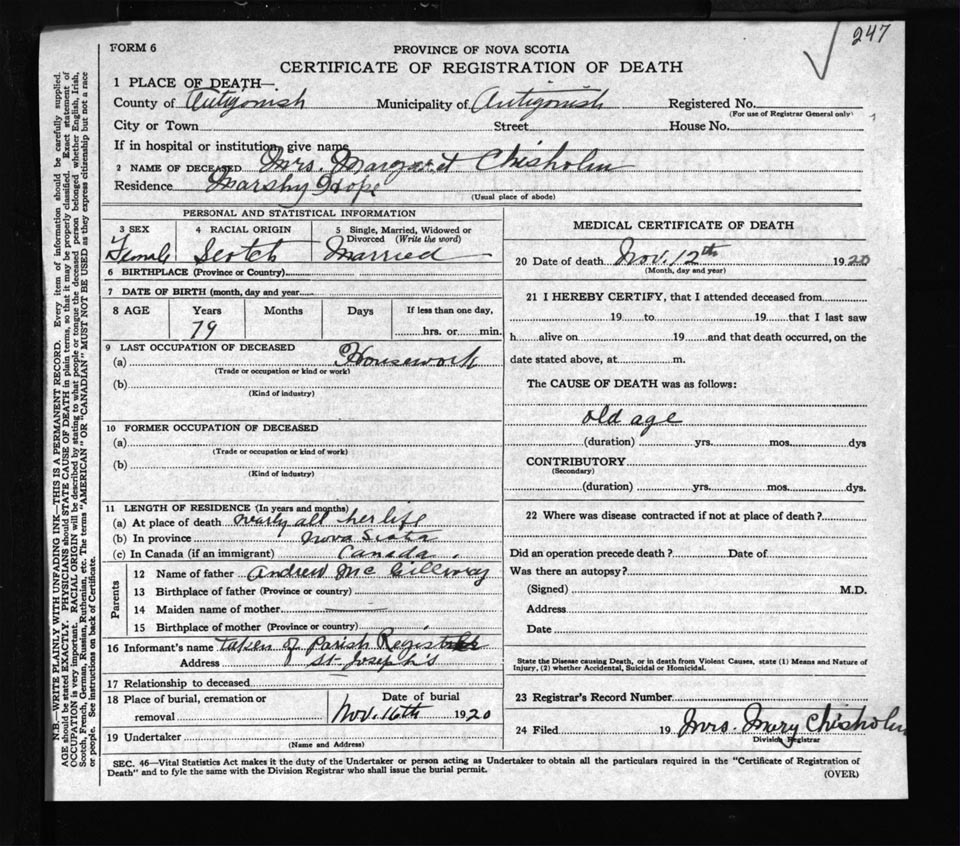 247
FORM 6
PROVINCE OF NOVA SCOTIA
CERTIFICATE OF REGISTRATION OF DEATH
1 PLACE OF DEATH—
County of Antigonish Municipality of Antigonish Registered No.
(For use of Registrar General only)
City or Town Street House No.
If in hospital or institution, give name
2 NAME OF DECEASED Mrs. Margaret Chisholm
Residence Marshy Hope
(Usual place of abode)
PERSONAL AND STATISTICAL INFORMATION
3 SEX 4 RACIAL ORIGIN 5 Single, Married, Widowed or
Divorced (Write the word)
Female Scotch Married
6 BIRTHPLACE (Province or Country)
7 DATE OF BIRTH (month, day and year
8 AGE Years Months Days If less than one day,
79 hrs. or min.
9 LAST OCCUPATION OF DECEASED
(a) Housework
(Trade or occupation or kind or work)
(b)
(Kind of industry)
10 FORMER OCCUPATION OF DECEASED
(a)
(Trade or occupation or kind of work)
(b)
(Kind of industry)
11 LENGTH OF RESIDENCE (In years and months)
(a) At place of death nearly all her life
(b) In province Nova Scotia
(c) In Canada (if an immigrant) Canada.
Parents
12 Name of father Andrew McGillivray
13 Birthplace of father (Province or country)
14 Maiden name of mother
15 Birthplace of mother (Province or country)
16 Informant's name taken of Parish Register
Address St. Joseph's
17 Relationship to deceased
18 Place of burial, cremation or
removal
Date of burial
Nov. 16th 1920
19 Undertaker
(Name and Address)
MEDICAL CERTIFICATE OF DEATH
20 Date of death Nov. 12th 1920
(Month, day and year)
21 I HEREBY CERTIFY, that I attended deceased from
19 to 19 that I last saw
h alive on 19 and that death occurred, on the
date stated above, at m.
The CAUSE OF DEATH was as follows:
old age
(duration) yrs. mos. dys
CONTRIBUTORY
(Secondary)
(duration) yrs. mos. dys.
22 Where was disease contracted if not at place of death?
Did an operation precede death? Date of
Was there an autopsy?
(Signed) M.D.
Address
Date
State the Disease causing Death, or in death from Violent Causes, state (1) Means and Nature of
Injury, (2) whether Accidental, Suicidal or Homicidal.
23 Registrar's Record Number
24 Filed 19 Mrs. Mary Chisholm
Division Registrar
SEC. 46—Vital Statistics Act makes it the duty of the Undertaker or person acting as Undertaker to obtain all the particulars required in the "Certificate of Registration of
Death" and to fyle the same with the Division Registrar who shall issue the burial permit.
(OVER)
N.B.—WRITE PLAINLY WITH UNFADING INK—THIS IS A PERMANENT RECORD. Every item of information should be carefully supplied.
AGE should be stated EXACTLY. PHYSICIANS should STATE CAUSE OF DEATH in plain terms, so that it may be properly classified. Exact statement of
OCCUPATION is very important. RACIAL ORIGIN will be described by stating to what people or tongue the deceased person belonged whether English, Irish,
Scotch, French, German, Russian, Ruthenian, etc. The terms "AMERICAN" OR "CANADIAN" MUST NOT BE USED as they express citizenship but not a race
or people. See instructions on back of Certificate.